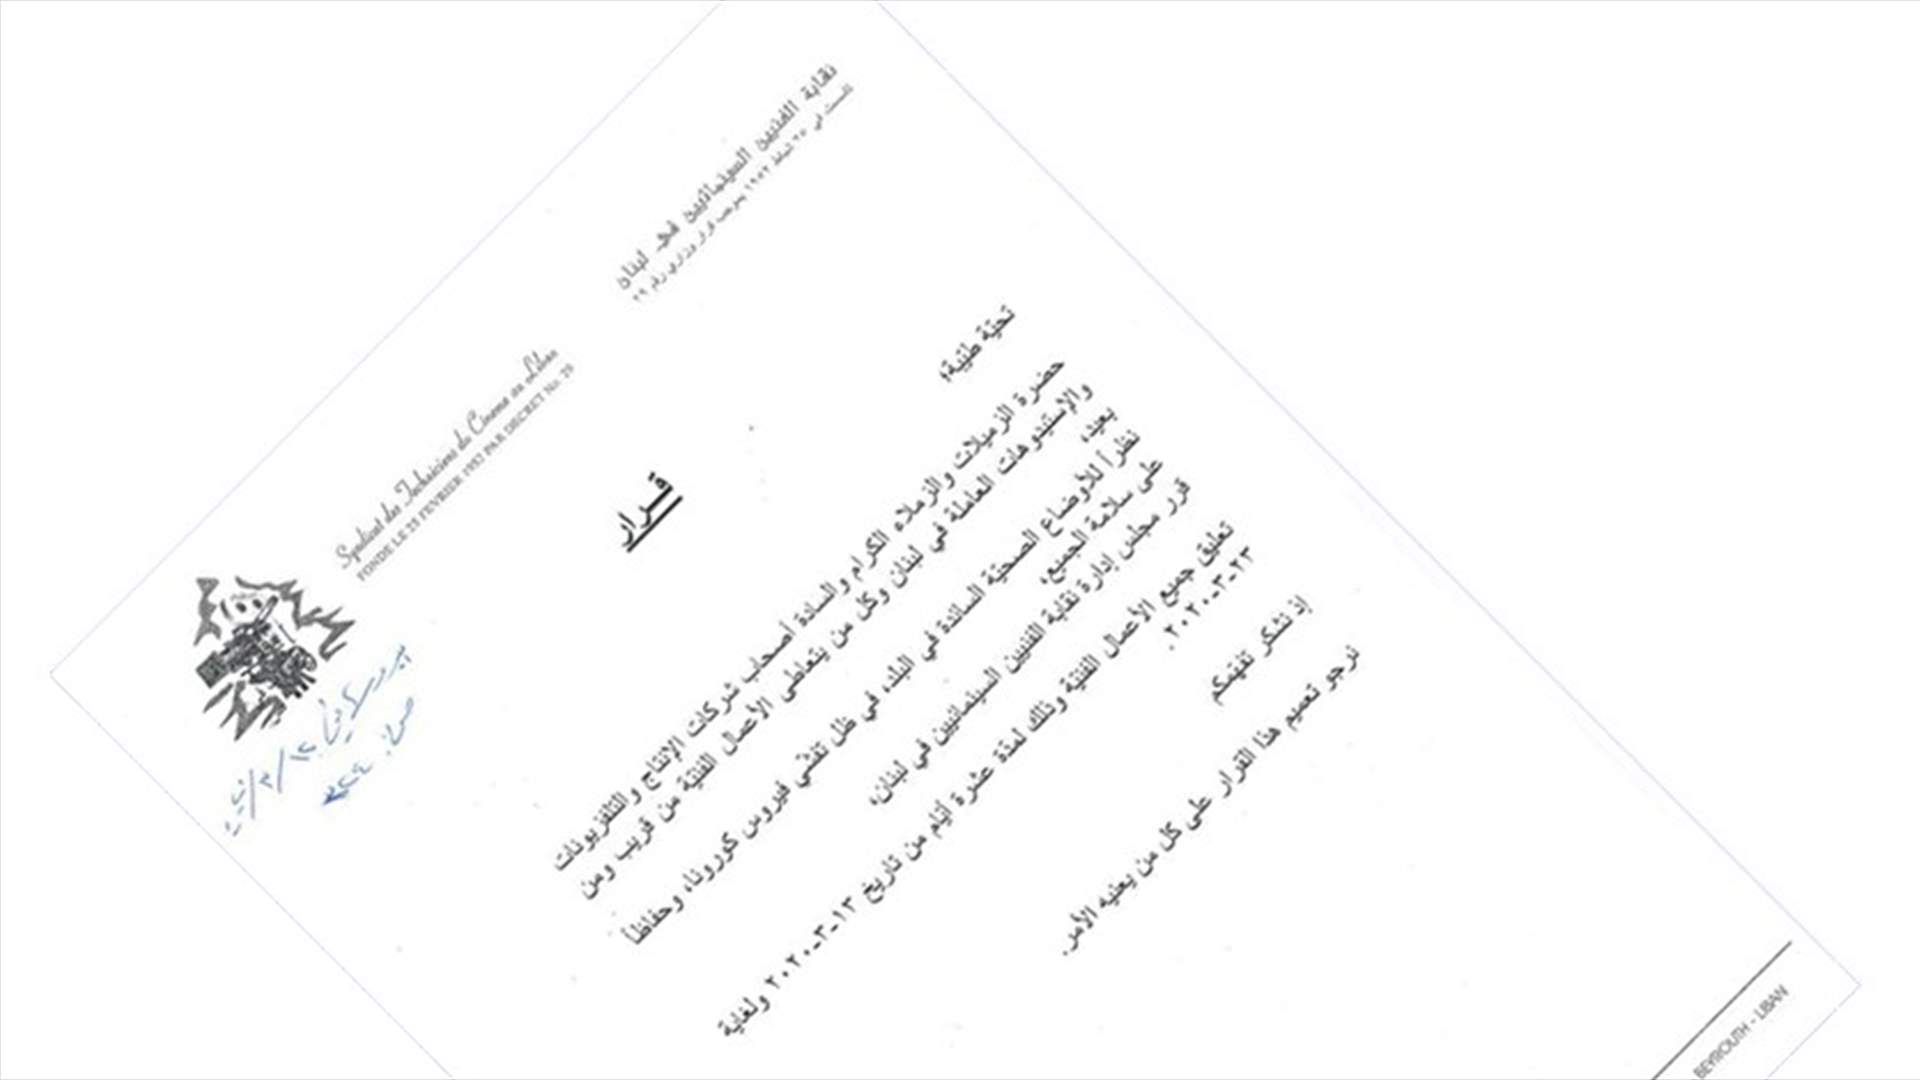 نقابة الفنيين السينمائيين في لبنان
تأسست في ٢٥ شباط ١٩٥٢ بموجب قرار وزاري رقم ٢٩
Syndicat des Techniciens du Cinema au Liban
FONDE LE 25 FEVRIER 1952 PAR DECRET No. 29
قـرار
تحيّة طيّبة؛
حضرة الزميلات والزملاء الكرام والسادة أصحاب شركات الإنتاج والتلفزيونات
والاستيدوهات العاملة في لبنان وكل من يتعاطى الأعمال الفنيّة من قريب ومن
بعيد،
نظراً للأوضاع الصحيّة السائدة في البلد، في ظل تفشّي فيروس كورونا، وحفاظاً
على سلامة الجميع،
قرر مجلس إدارة نقابة الفنيين السينمائيين في لبنان،
تعليق جميع الأعمال الفنيّة وذلك لمدّة عشرة أيّام من تاريخ ١٣-٣-٢٠٢٠ ولغاية
٢٣-٣-٢٠٢٠.
إذ نشكر تفهّمكم
نرجو تعميم هذا القرار على كل من يعنيه الأمر.
BEYROUTH - LIBAN